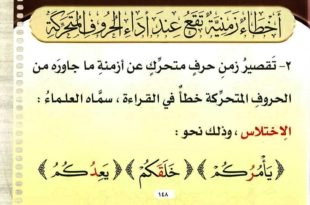 أخطاء زمنية تقع عند أداء الحروف المتحركة
٢- تقصيرُ زمنِ حرفٍ متحركٍ عن أزمنةِ ما جاورَه من
الحروفِ المتحركة خطأً في القراءة ، سمَّاه العلماءُ :
الِاختلاس ، وذلك نحو :
﴿يَأْمُرُكُمْ﴾ ﴿خَلَقَكُمْ﴾ ﴿يَعِدُكُمُ﴾
١٤٨